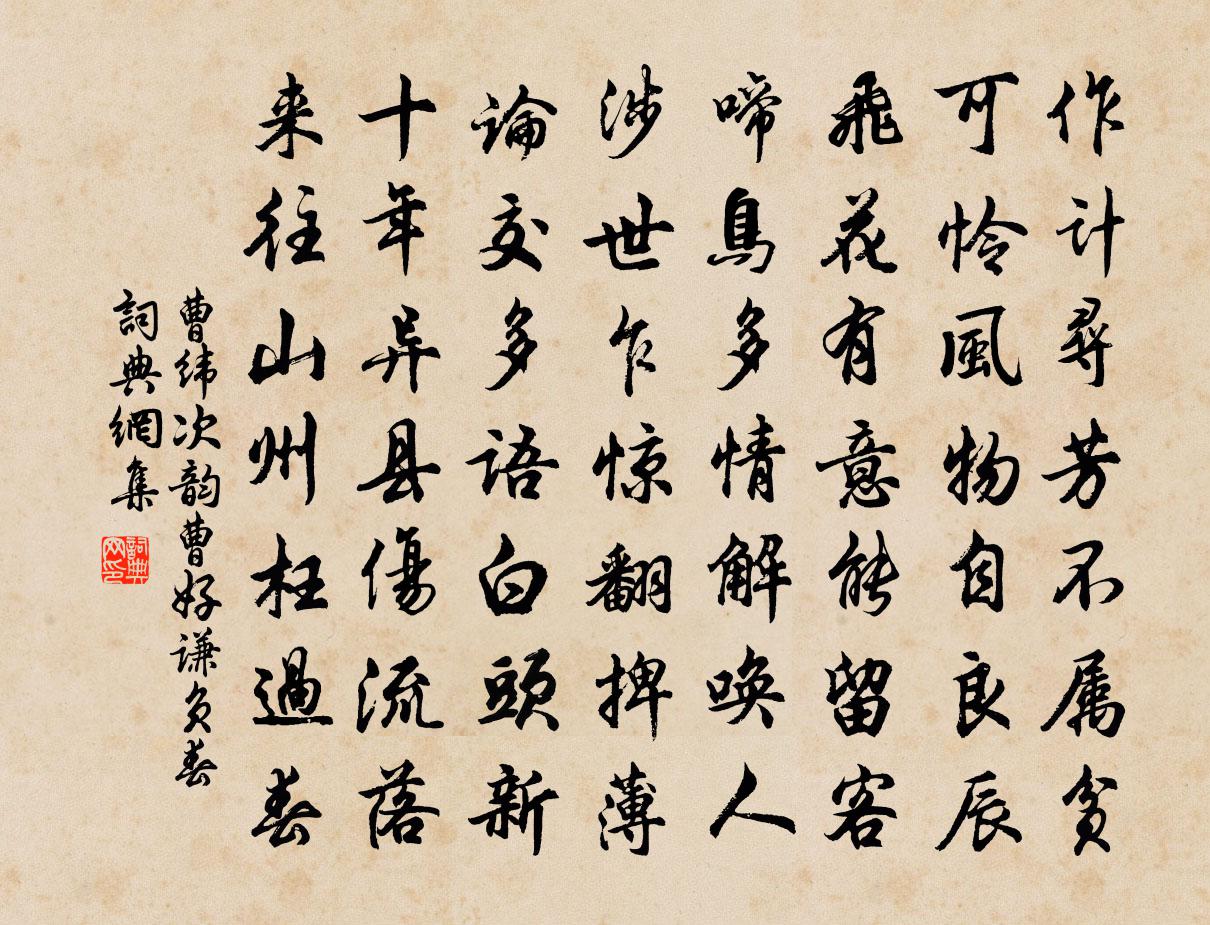 作计尋芳不属贫
可怜風物自良辰
飛花有意能留客
啼鳥多情解唤人
涉世乍惊翻捭薄
論交多語白頭新
十年异县傷流落
来往山州枉過春
曹纬次韵曹好谦负春
詞典網集
詞典网印